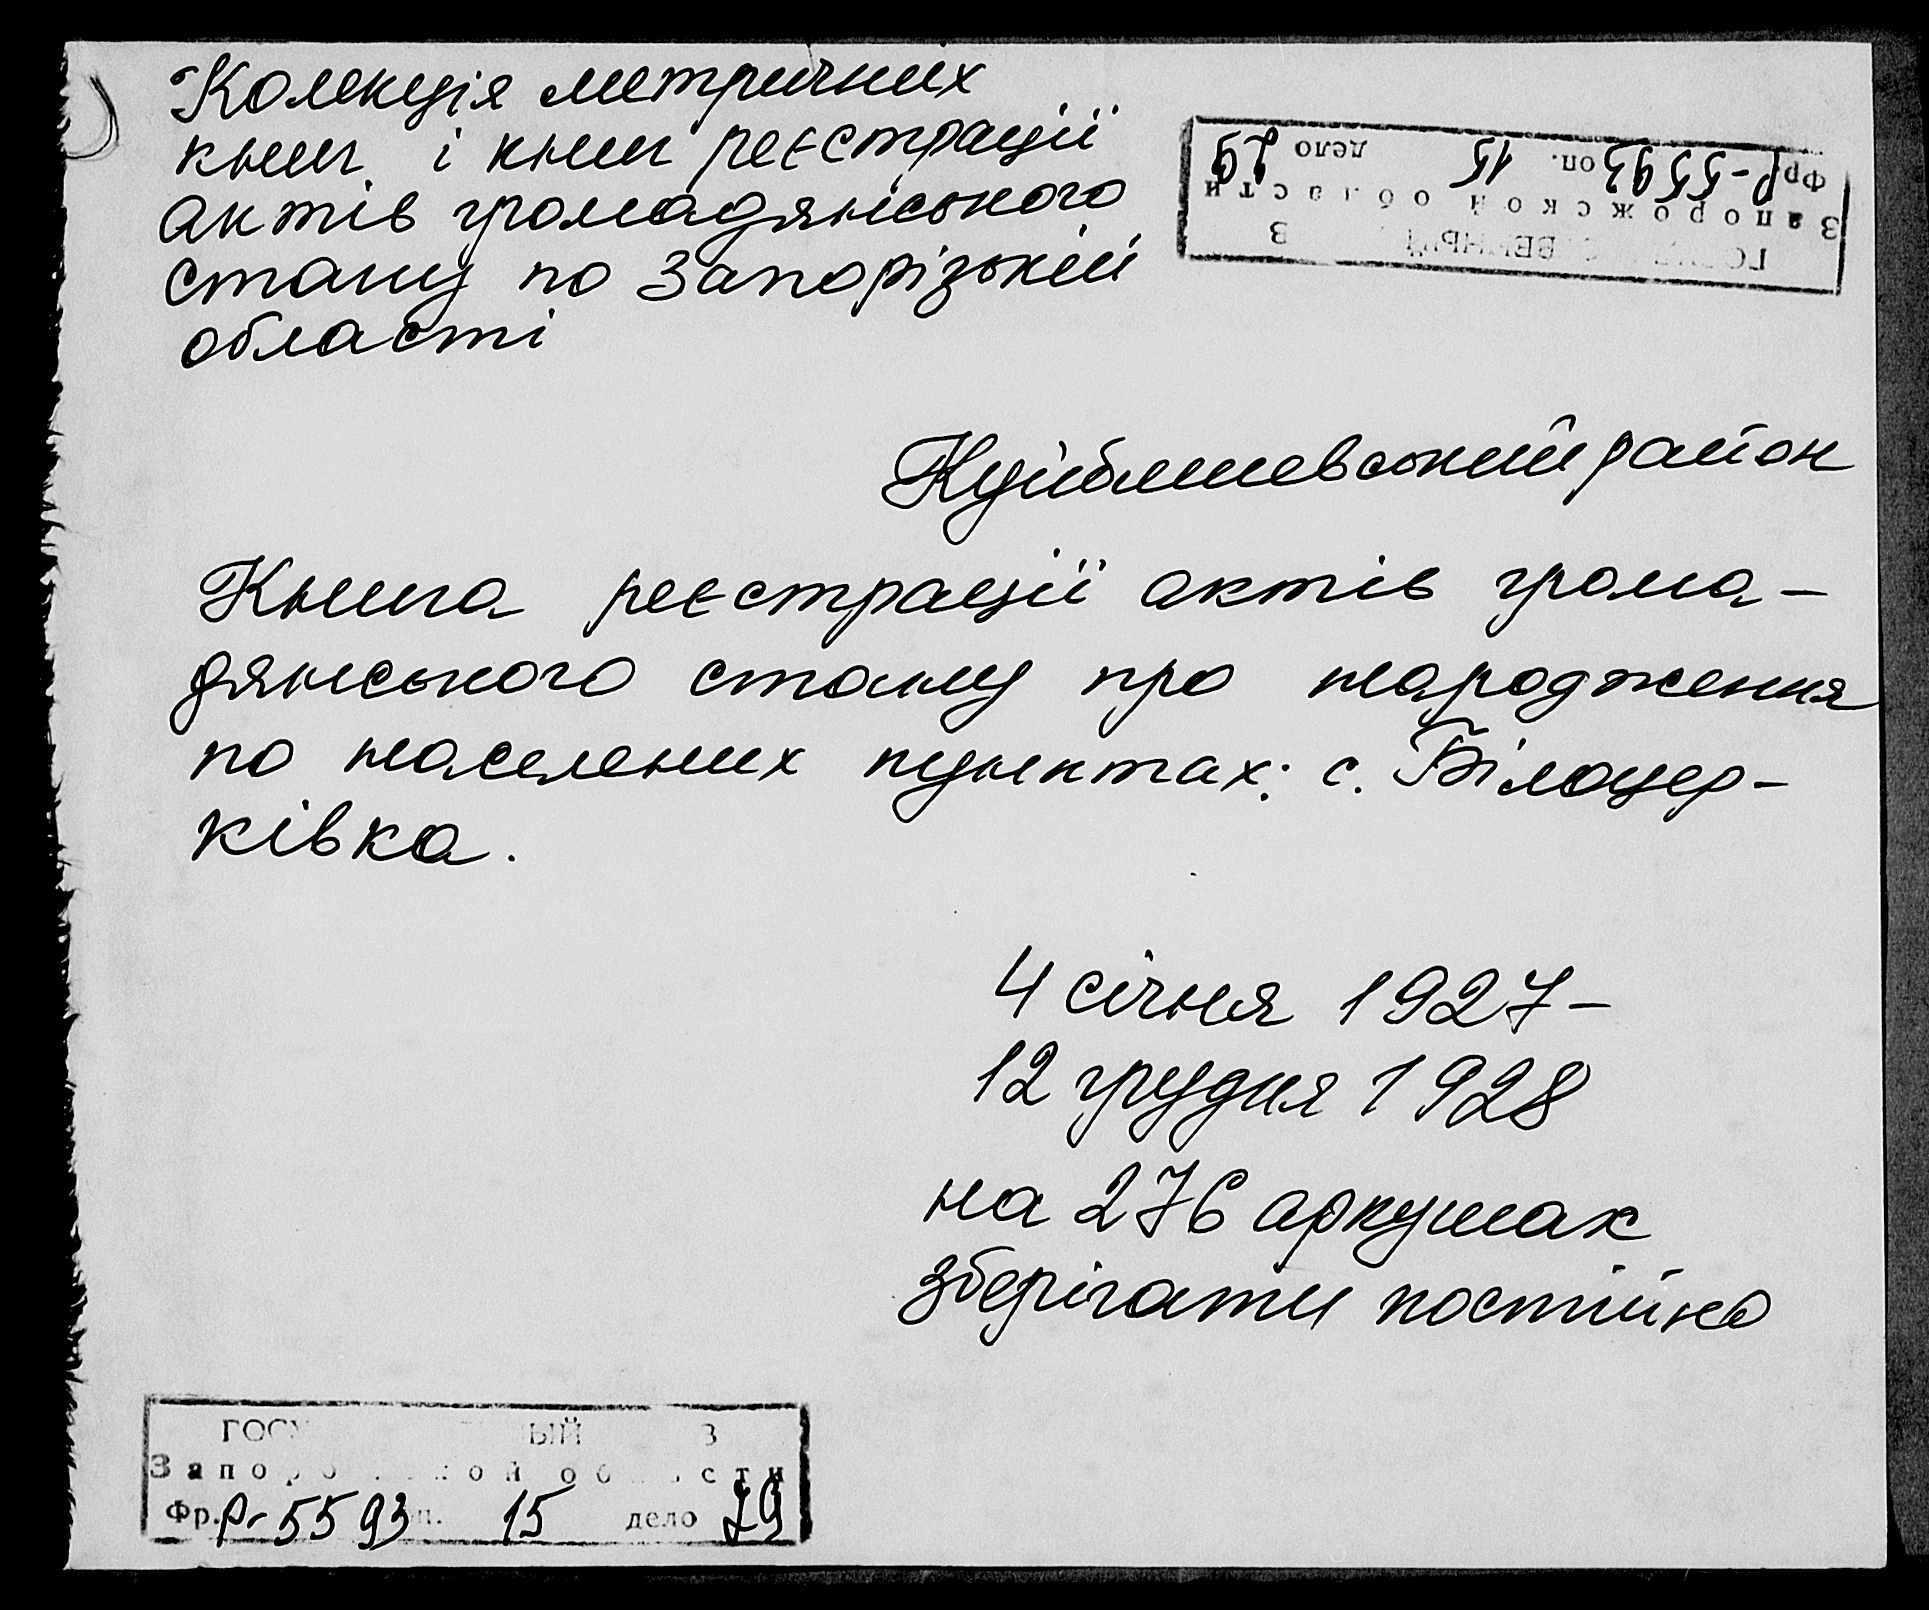 Колекція метричних
книг і книг реєстрації
актів громадянського
стану по Запорізькій
області
Фр. Р-5593 оп. 15 дело
Запорожской области
Куйбишевський район
Книга реєстрації актів грома-
дянського стану про народження
по населених пунктах: с. Білоцер-
ківка.
4 січня 1927-
12 грудня 1928
на 276 аркушах
зберігати постійно
Фр. Р-5593 15 дело